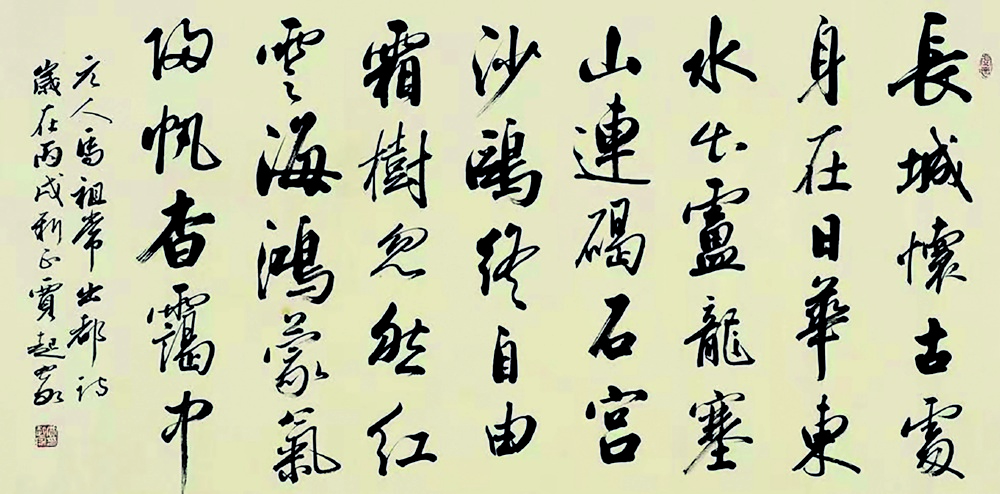 長城懷古處
身在日華東
水出盧龍塞
山連碣石宮
沙鷗終自由
霜樹忽然紅
雲海鴻蒙氣
歸帆杳靄中
元人馬祖常出都詩
歲在丙戌利正賈起家